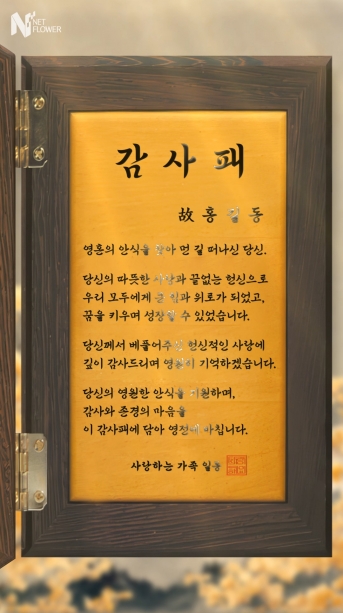 NET
FLOWER
감사패
故 홍길동
영혼의 안식을 찾아 먼 길 떠나신 당신.
당신의 따뜻한 사랑과 끝없는 헌신으로
우리 모두에게 큰 힘과 위로가 되었고,
꿈을 키우며 성장할 수 있었습니다.
당신께서 베풀어주신 헌신적인 사랑에
깊이 감사드리며 영원히 기억하겠습니다.
당신의 영원한 안식을 기원하며,
감사와 존경의 마음을
이 감사패에 담아 영전에 바칩니다.
사랑하는 가족 일동